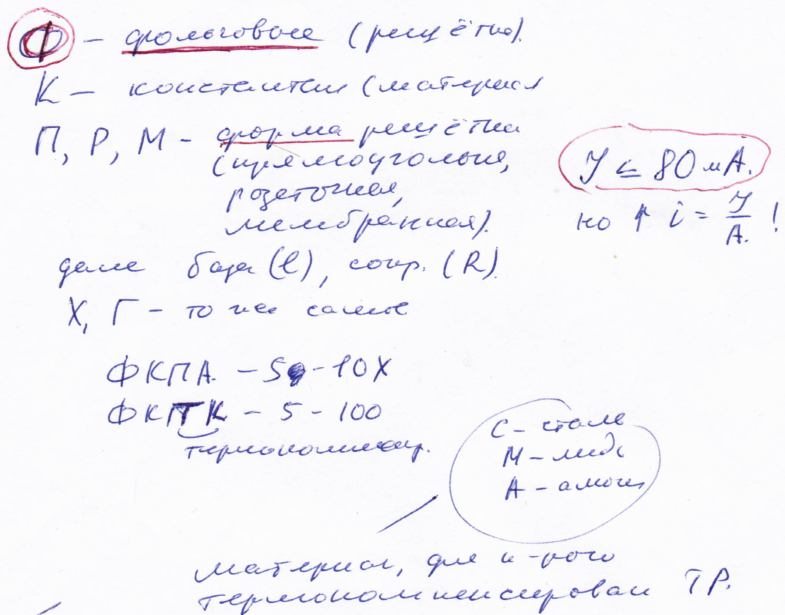 Ф – фольговые (решётка).
К – константан (материал
П, Р, М – форма решётки
(прямоугольная,
розеточная,
мембранная).
J ≤ 80 мА.
но ↑ i = J/A. !
далее база (l), сопр. (R).
Х, Г – то же самое
ФКПА – 5 – 10Х
ФКПТК – 5 – 100
термокомпенсир.
С – сталь
М – медь
А – алюмин
материал, для к-рого
термокомпенсирован ТР.